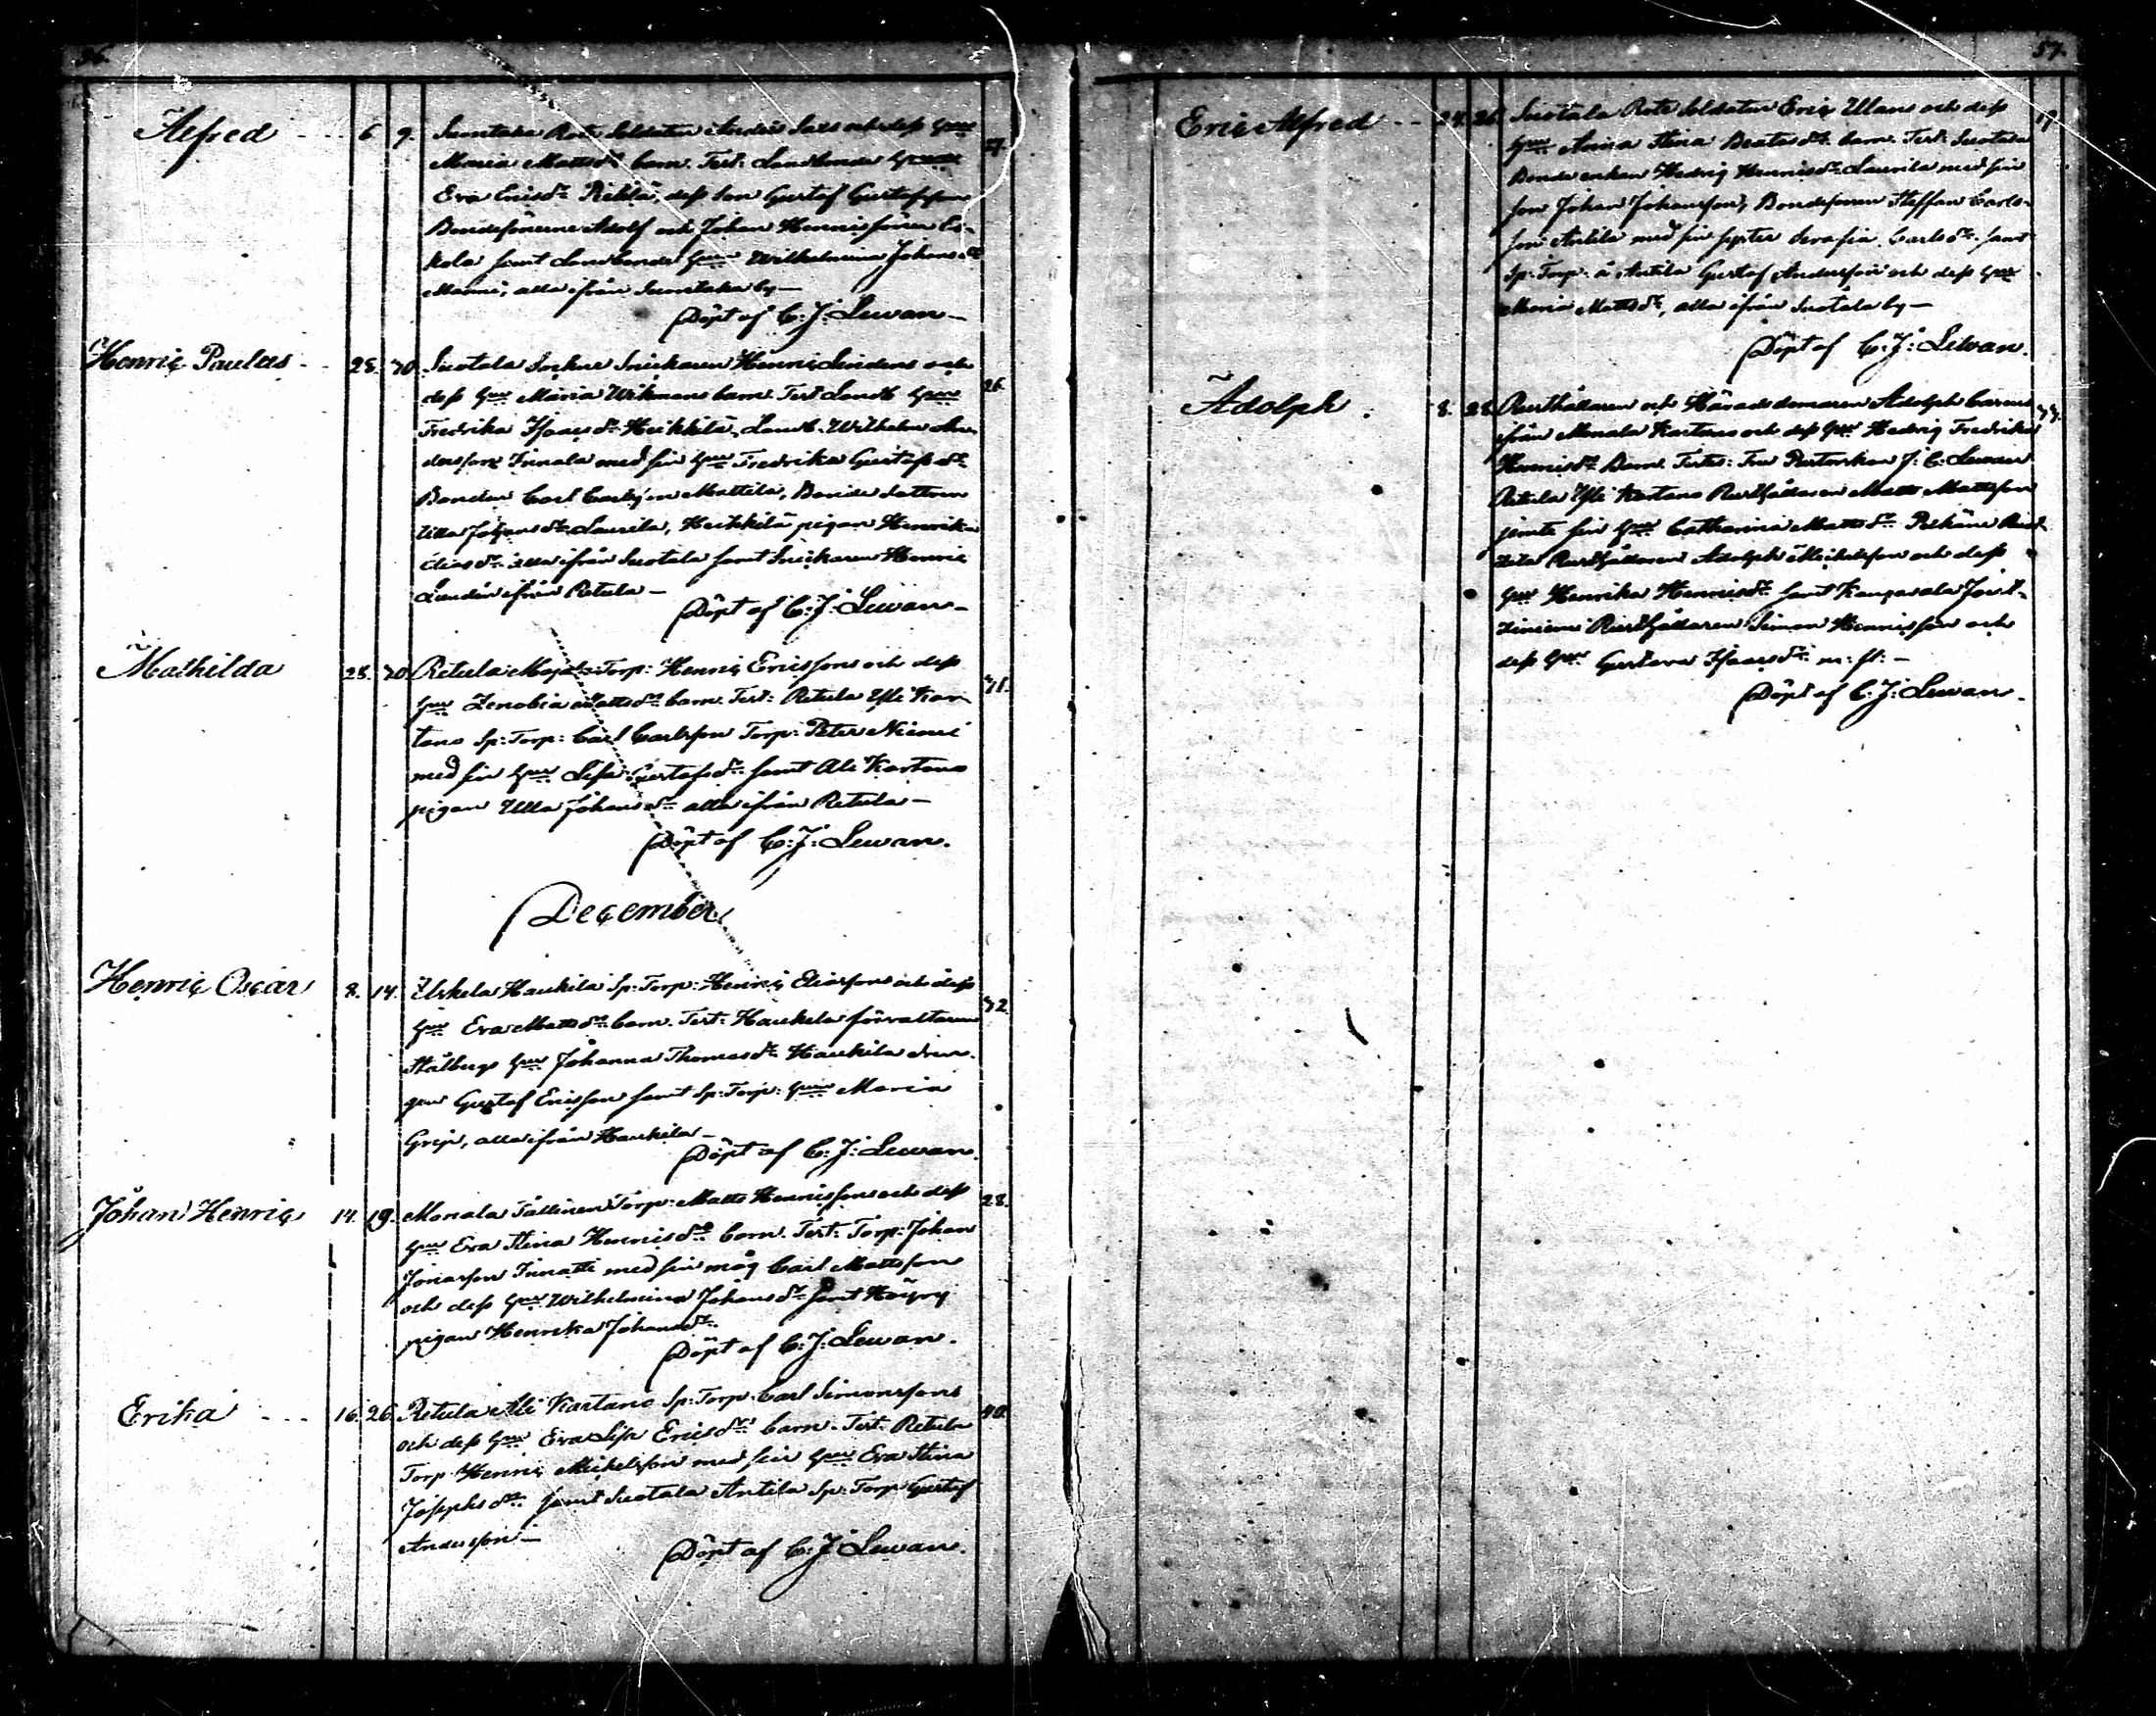 56.
Alfred 6 9. Suontaka Rote Soldaten Anders Sass och dess Hu 27.
Maria Mattsdr barn. Test: Landbonde
Eva Ericsdr Rekkilä, dess son Gustaf Gustafsson
Bondesönerne Adolf och Johan Henricssöner Es-
kola samt Landbonde Hu Wilhelmina Johansdr
Manni, alla ifrån Suontaka by —
Döpt af C: J: Lewan —
Henric Paulus 28. 30. Suotala Sockne Snickaren Henric Lindens och 26.
dess Hu Maria Wikmans barn. Test Landb Hu
Fredrika Isaacsdr Heikkilä, Landb. Wilhelm An-
dersson Innala med sin Hu Fredrika Gustafsdr
Bonden Carl Carlsson Mattila, Bonde dottren
Ulla Johansdr Laurila, Heikkilä pigan Henrika
Eliasdr alla ifrån Suotala samt Snickaren Henric
Lundén ifrån Retula —
Döpt af C: J: Lewan —
Mathilda 28. 30. Retula Torp: Henric Ericssons och dess 31.
Hu Zenobia Mattsdr barn. Test: Retula Yli Kar
tano Sp: Torp: Carl Carlsson Torp: Peter Niemi
med sin Hu Lisa Gustafsdr samt Ali Kartano
pigan Ulla Johansdr alla ifrån Retula —
Döpt af C: J: Lewan.
December
Henric Oscar 8. 14. Uskela Haukila Sp: Torp: Henric Eliassons och dess 32.
Hu Eva Mattsdr barn. Test: Haukila förvaltaren
Stålbergs Hu Johanna Thomasdr Haukila drän-
gen Gustaf Ericsson samt Sp: Torp: Hu Maria
Grip, alla ifrån Haukila —
Döpt af C: J: Lewan.
Johan Henric 14. 19. Monala Tällinen Torp: Matts Henricssons och dess 28.
Hu Eva Stina Henricsdr barn. Test: Torp: Johan
Jonasson Innatti med sin måg Carl Mattsson
och dess Hu Wilhelmina Johansdr samt Höyry
pigan Henrika Johansdr
Döpt af C: J: Lewan.
Erika 16. 26. Retula Ali Kartano Sp: Torp Carl Simonssons 40.
och dess Hu Eva Lisa Ericsdr barn. Test: Retula
Torp Henric Michelsson med sin Hu Eva Stina
Josephsdr samt Suotala Antila Sp: Torp Gustaf
Andersson —
Döpt af C: J: Lewan.
57.
Eric Alfred 24. 26. Suotala Rote Soldaten Eric Ulan och dess
Hu Anna Stina Beatasdr barn. Test: Suotala
Bonde enkan Hedvig Henricsdr Laurila med sin
son Johan Johansson, Bondesonen Steffan Carls-
son Antila med sin syster Serafia Carlsdr samt
Sp: Torp: å Antila Gustaf Andersson och dess Hu
Maria Mattsdr, alla ifrån Suotala by —
Döpt af C: J: Lewan.
Adolph 8. 28. Rusthållaren och Häradsdomaren Adolph
ifrån Monala Kartano och dess Hu Hedvig Fredrika
Henricsdr Barn. Testes: Fru Pastorskan J: C: Lewan
Retula Yli Kartano Rusthållaren Matts Mattsson
jemte sin Hu Catharina Mattsdr
Rusthållaren Adolph Michelsson och dess
Hu Henrika Henricsdr samt Kangasala
Rusthållaren Simon Henricsson och
dess Hu Gustava Isaacsdr m: fl: —
Döpt af C: J: Lewan.